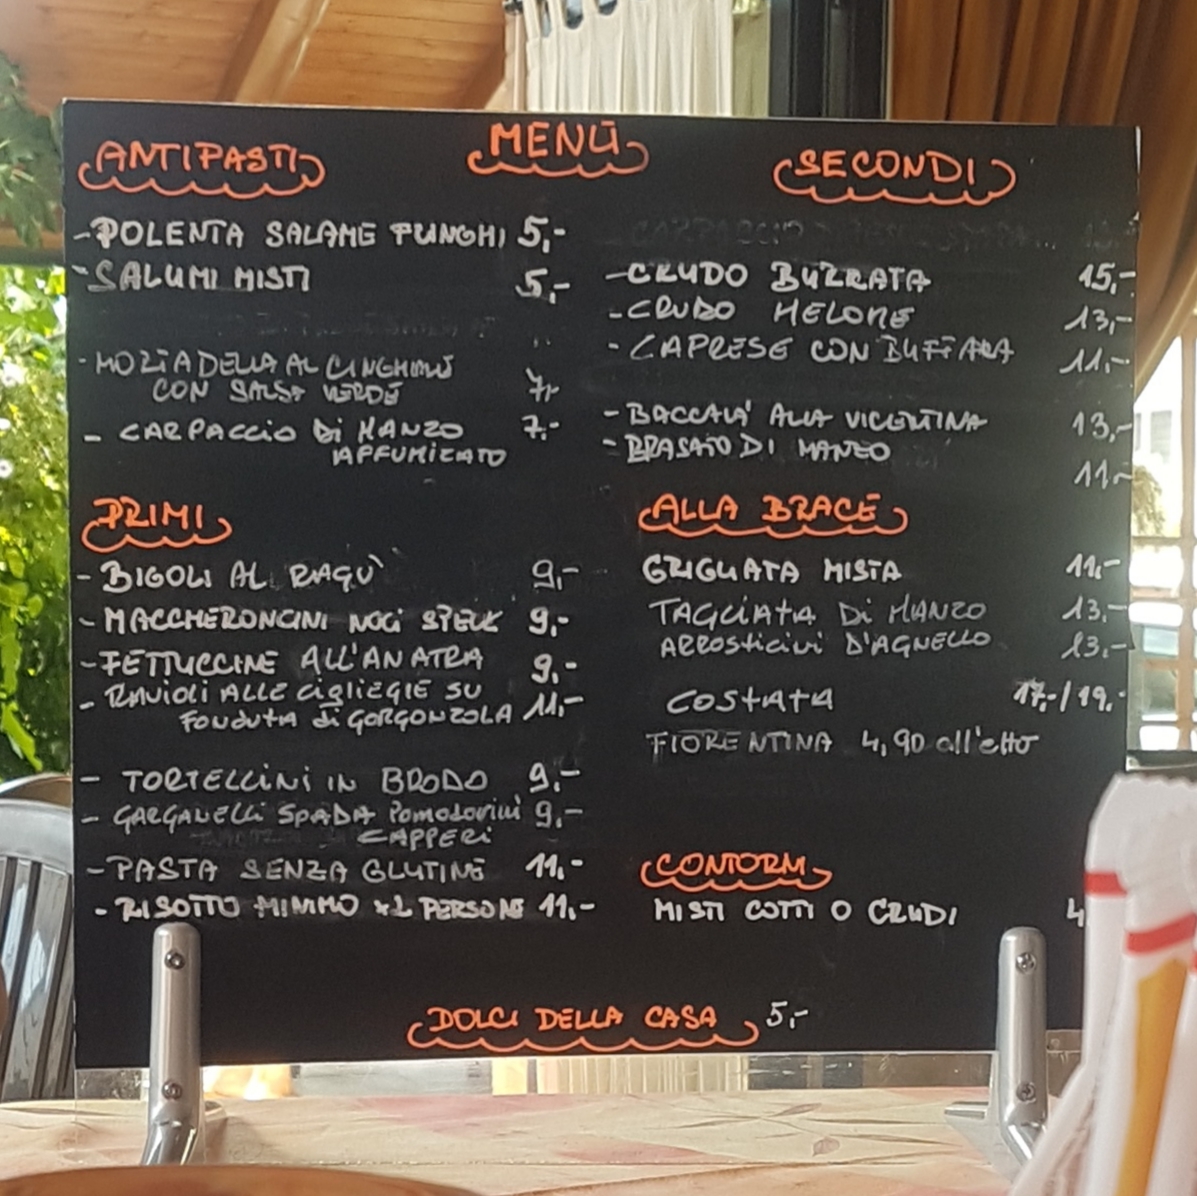 MENÙ
ANTIPASTI
-POLENTA SALAME FUNGHI 5,-
-SALUMI MISTI 5,-
CON SALSA VERDE 7,-
- CARPACCIO DI MANZO 7,-
AFFUMICATO
PRIMI
- BIGOLI AL RAGÙ 9,-
- MACCHERONCINI NOCI SPECK 9,-
-FETTUCCINE ALL'ANATRA 9,-
- RAVIOLI ALLE CIGLIEGIE SU
FONDUTA di GORGONZOLA 11,-
- TORTELLINI IN BRODO 9,-
- GARGANELLI SPADA Pomodorini 9,-
CAPPERI
-PASTA SENZA GLUTINE 11,-
- RISOTTO MINIMO x2 PERSONE 11,-
SECONDI
-CRUDO BURRATA 15,-
-CRUDO MELONE 13,-
- CAPRESE CON BUFFALA 11,-
- BACCALA' ALLA VICENTINA 13,-
- BRASATO DI MANZO
11,-
ALLA BRACE
GRIGLIATA MISTA 11,-
TAGLIATA DI MANZO 13,-
ARROSTICINI D'AGNELLO 13,-
COSTATA 17,-/19,-
FIORENTINA 4,90 all'etto
CONTORNI
MISTI COTTI O CRUDI 4
DOLCI DELLA CASA 5,-